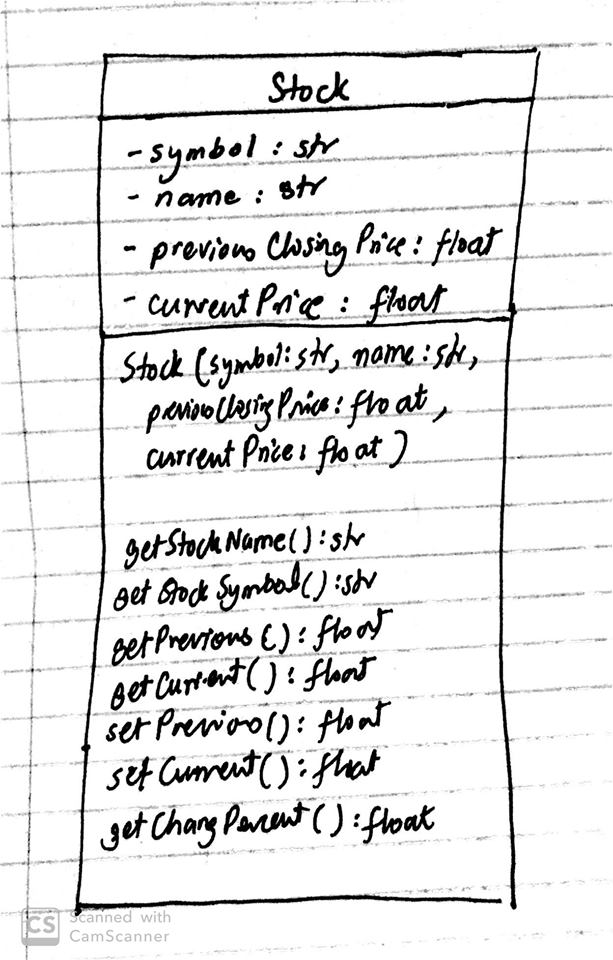 Stock
- symbol : str
- name : str
- previous Closing Price : float
- current Price : float
Stock (symbol: str, name : str,
previousClosing Price : float,
current Price : float )
getStockName() : str
get Stock Symbol() : str
getPrevious() : float
getCurrent() : float
set Previoo() : float
set Current() : float
get Chang Percent () : float
CS Scanned with
CamScanner